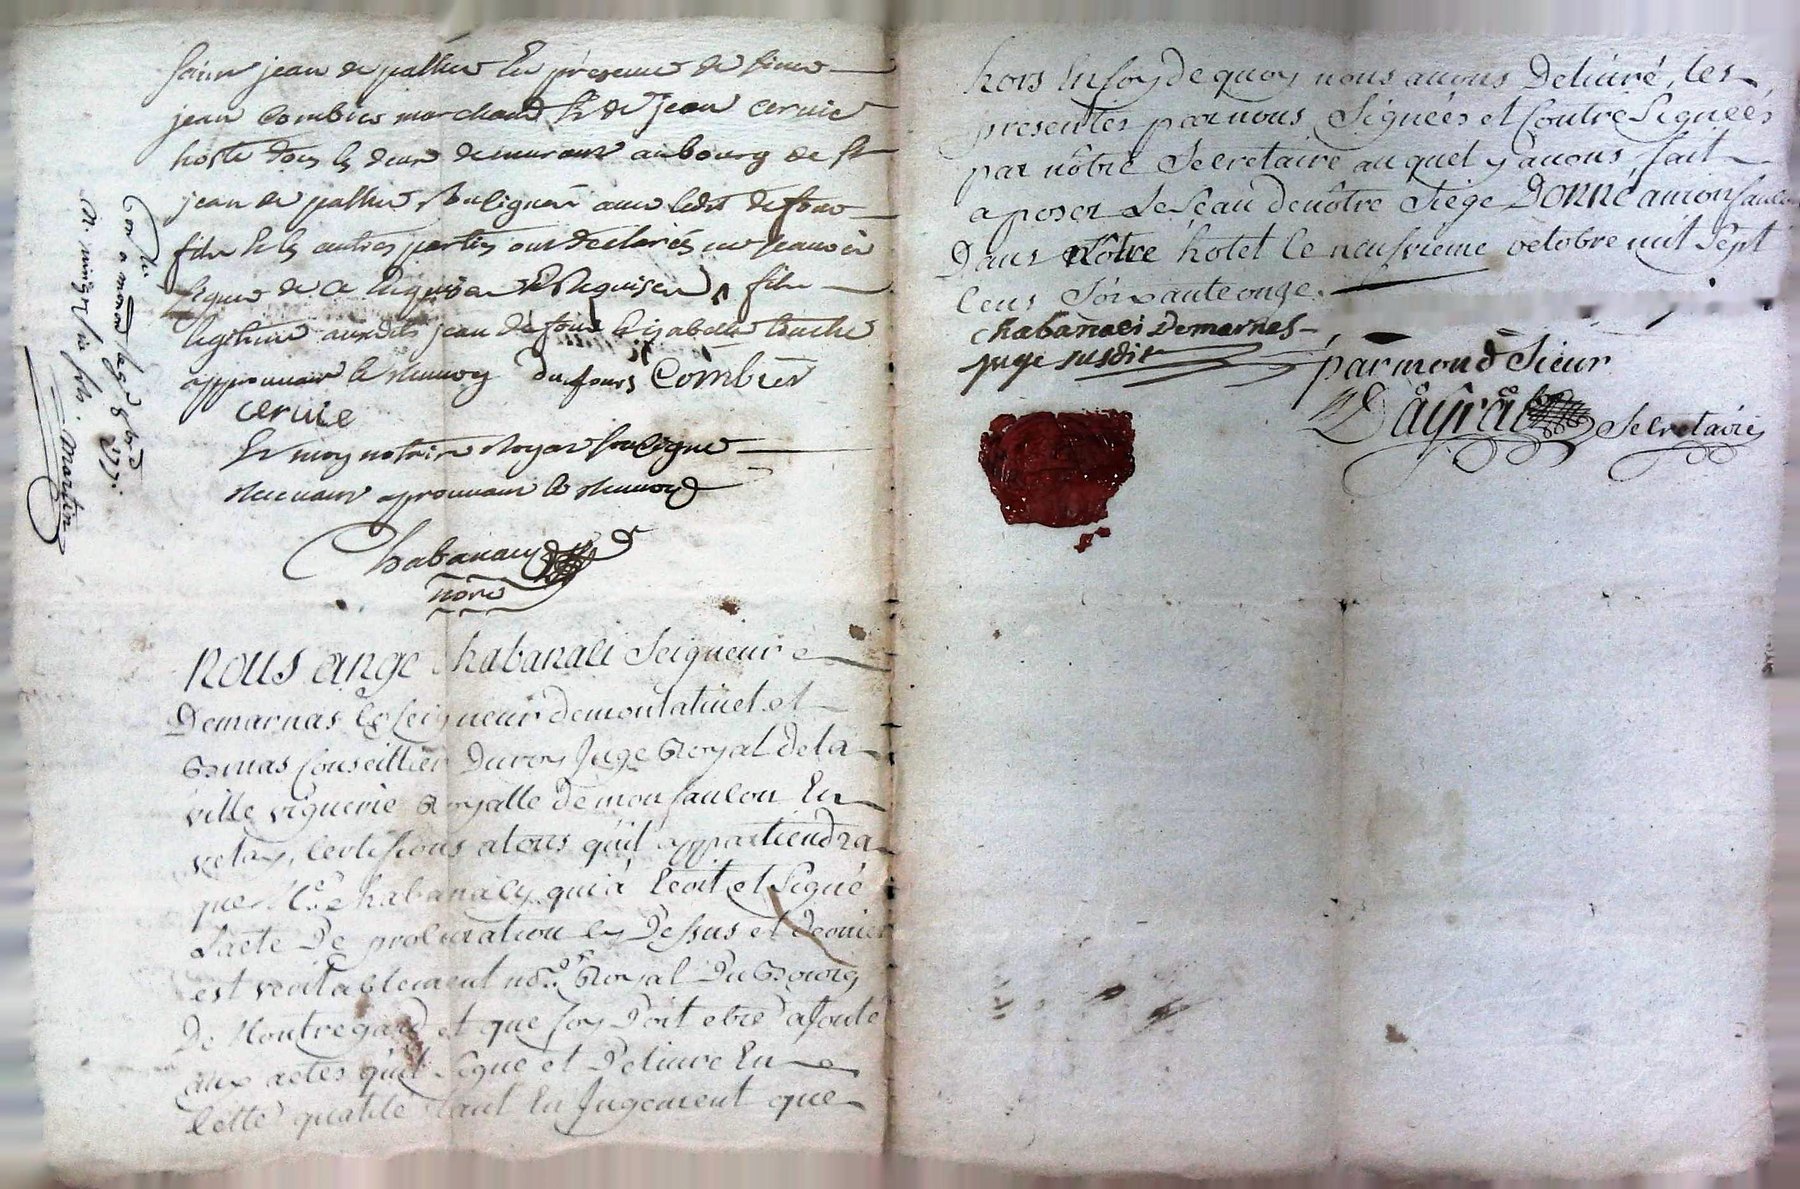 jean de pallier En presence de sieur
jean Combier marchand & de jean cervie
hoste tous les deux demurants au bourg de St
jean de pallier Soulignés avec ledit dufour
fils & les autres parties ont declarés ne scavoir
signer de ce Enquis et Requises, fils
legitime auxdits jean dufour & izabelle
approuvant le renvoy Dufours Combier
cervie
Et moy notaire Royal sousigne
recevant aprouvant le renvoy
Chabanacy
nore
Martin
Nous ange Chabanaci Seigneur
Demarnas Co Seigneur demontatinet et
Conseillier Duroy Juge Royal dela
ville viguerie Royalle demonfaucon En
velay, Certifions atous quil appartiendra
que Me Chabanacy qui a Ecrit et Signé
L'acte De procuration cy Dessus et dernier
est veritablement nore Royal Du Bourg
De Montregard et que foy Doit etre ajoutée
aux actes qu'il Signe et Delivre En
Cette qualité tant En Jugement que
hors En foy de quoy nous avons Delivré, les
presentes par nous Signées et Contre Signées
par nôtre Secretaire au quel y avons fait
aposer Le Seau denôtre Siege Donné amonfaucon
Dans Nôtre hotel le neufvieme octobre mil Sept
Cens Soixante onze.
Chabanaci Demarnas
juge susdit
par mond Sieur
Dayral Secretaire